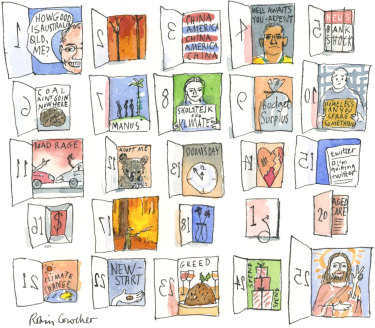 1
HOW GOOD
IS AUSTRALIA
BLD,
ME?
2
3
CHINA
AMERICA
CHINA
AMERICA
CHINA
4
HELL AWAITS
YOU-REPENT
5
NEWS
BANK
SHOCK
6
COAL
AIN'T GOIN'
NOWHERE
7
MANUS
8
SKOLSTREJK
FOR
KLIMATET
9
Budget
Surplus
10
HOMELESS
CAN YOU
SPARE
SOMETHING
11
ROAD RAGE
12
ADOPT ME
13
DOOMSDAY
14
15
twitter
twitter
16
$
17
18
19
20
AGED
CARE
21
CLIMATE
CHANGE
22
NEW-
START
23
GREED
24
SPEND
SPEND
25
Robin Cowcher